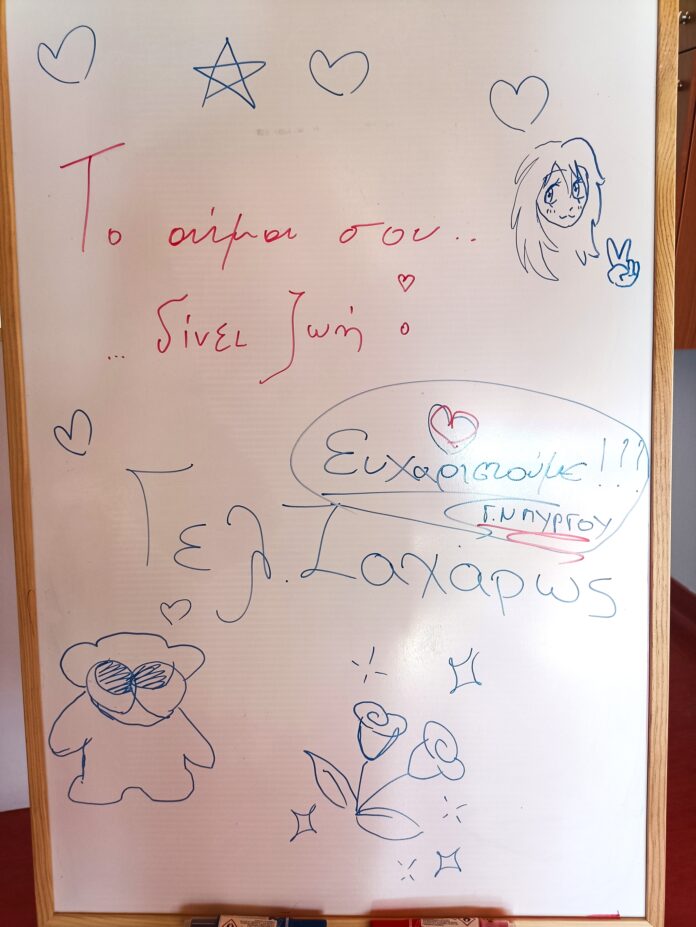 Το αίμα σου..
... δίνει ζωή!
Ευχαριστούμε!!!
Γ.Ν ΠΥΡΓΟΥ
Γελ. Ζαχάρως